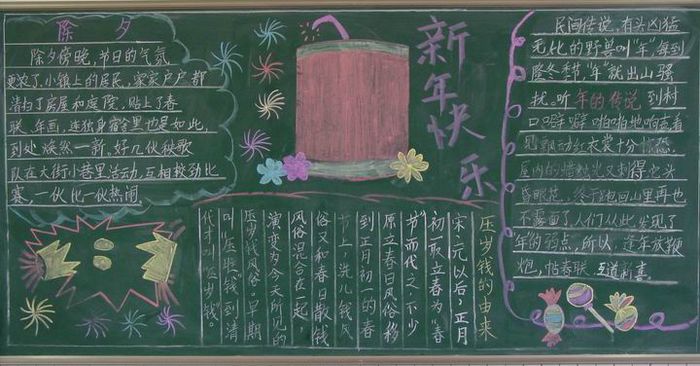 除夕
除夕傍晚,节日的气氛
更浓了,小镇上的居民,家家户户都
清扫了房屋和庭院,贴上了春
联、年画,连独身宿舍里也是如此,
到处焕然一新。好几伙秧歌
队在大街小巷里活动,互相较劲比
赛,一伙比一伙热闹
新年快乐
民间传说,有头凶猛
无比的野兽叫“年”每到
隆冬季节,“年”就出山骚
扰。听年的传说到村
口噼噼啪啪地响
飘动红衣裳十分惊恐
屋内的蜡烛光又刺得它头
昏眼花,终于跑回山里再也
不露面了人们从此发现了
年的弱点,所以,逢年放鞭
炮,帖春联互道新喜
压岁钱的由来
宋元以后,正月
初一取立春为“春
节”而代之。不少
原立春日风俗移
到正月初一的春
节上,洗儿钱风
俗又和春日散钱
风俗混合在一起,
演变为今天所见的
压岁钱风俗。早期
叫“压胜钱”到清
代才叫“压岁钱”。